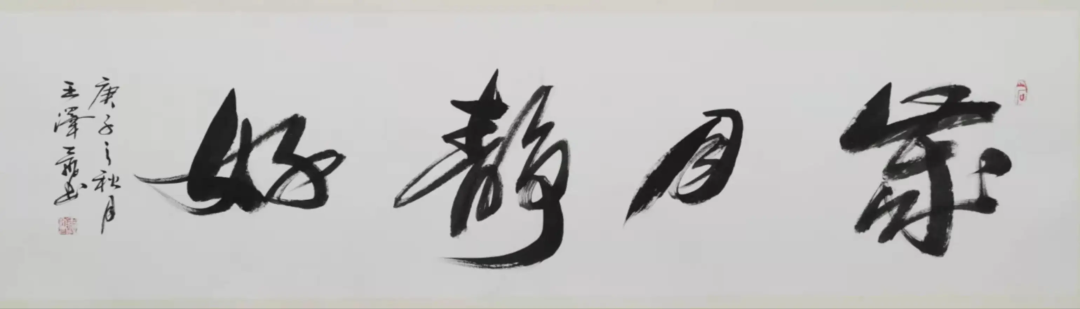 歲月靜好
庚子之秋月
王澤